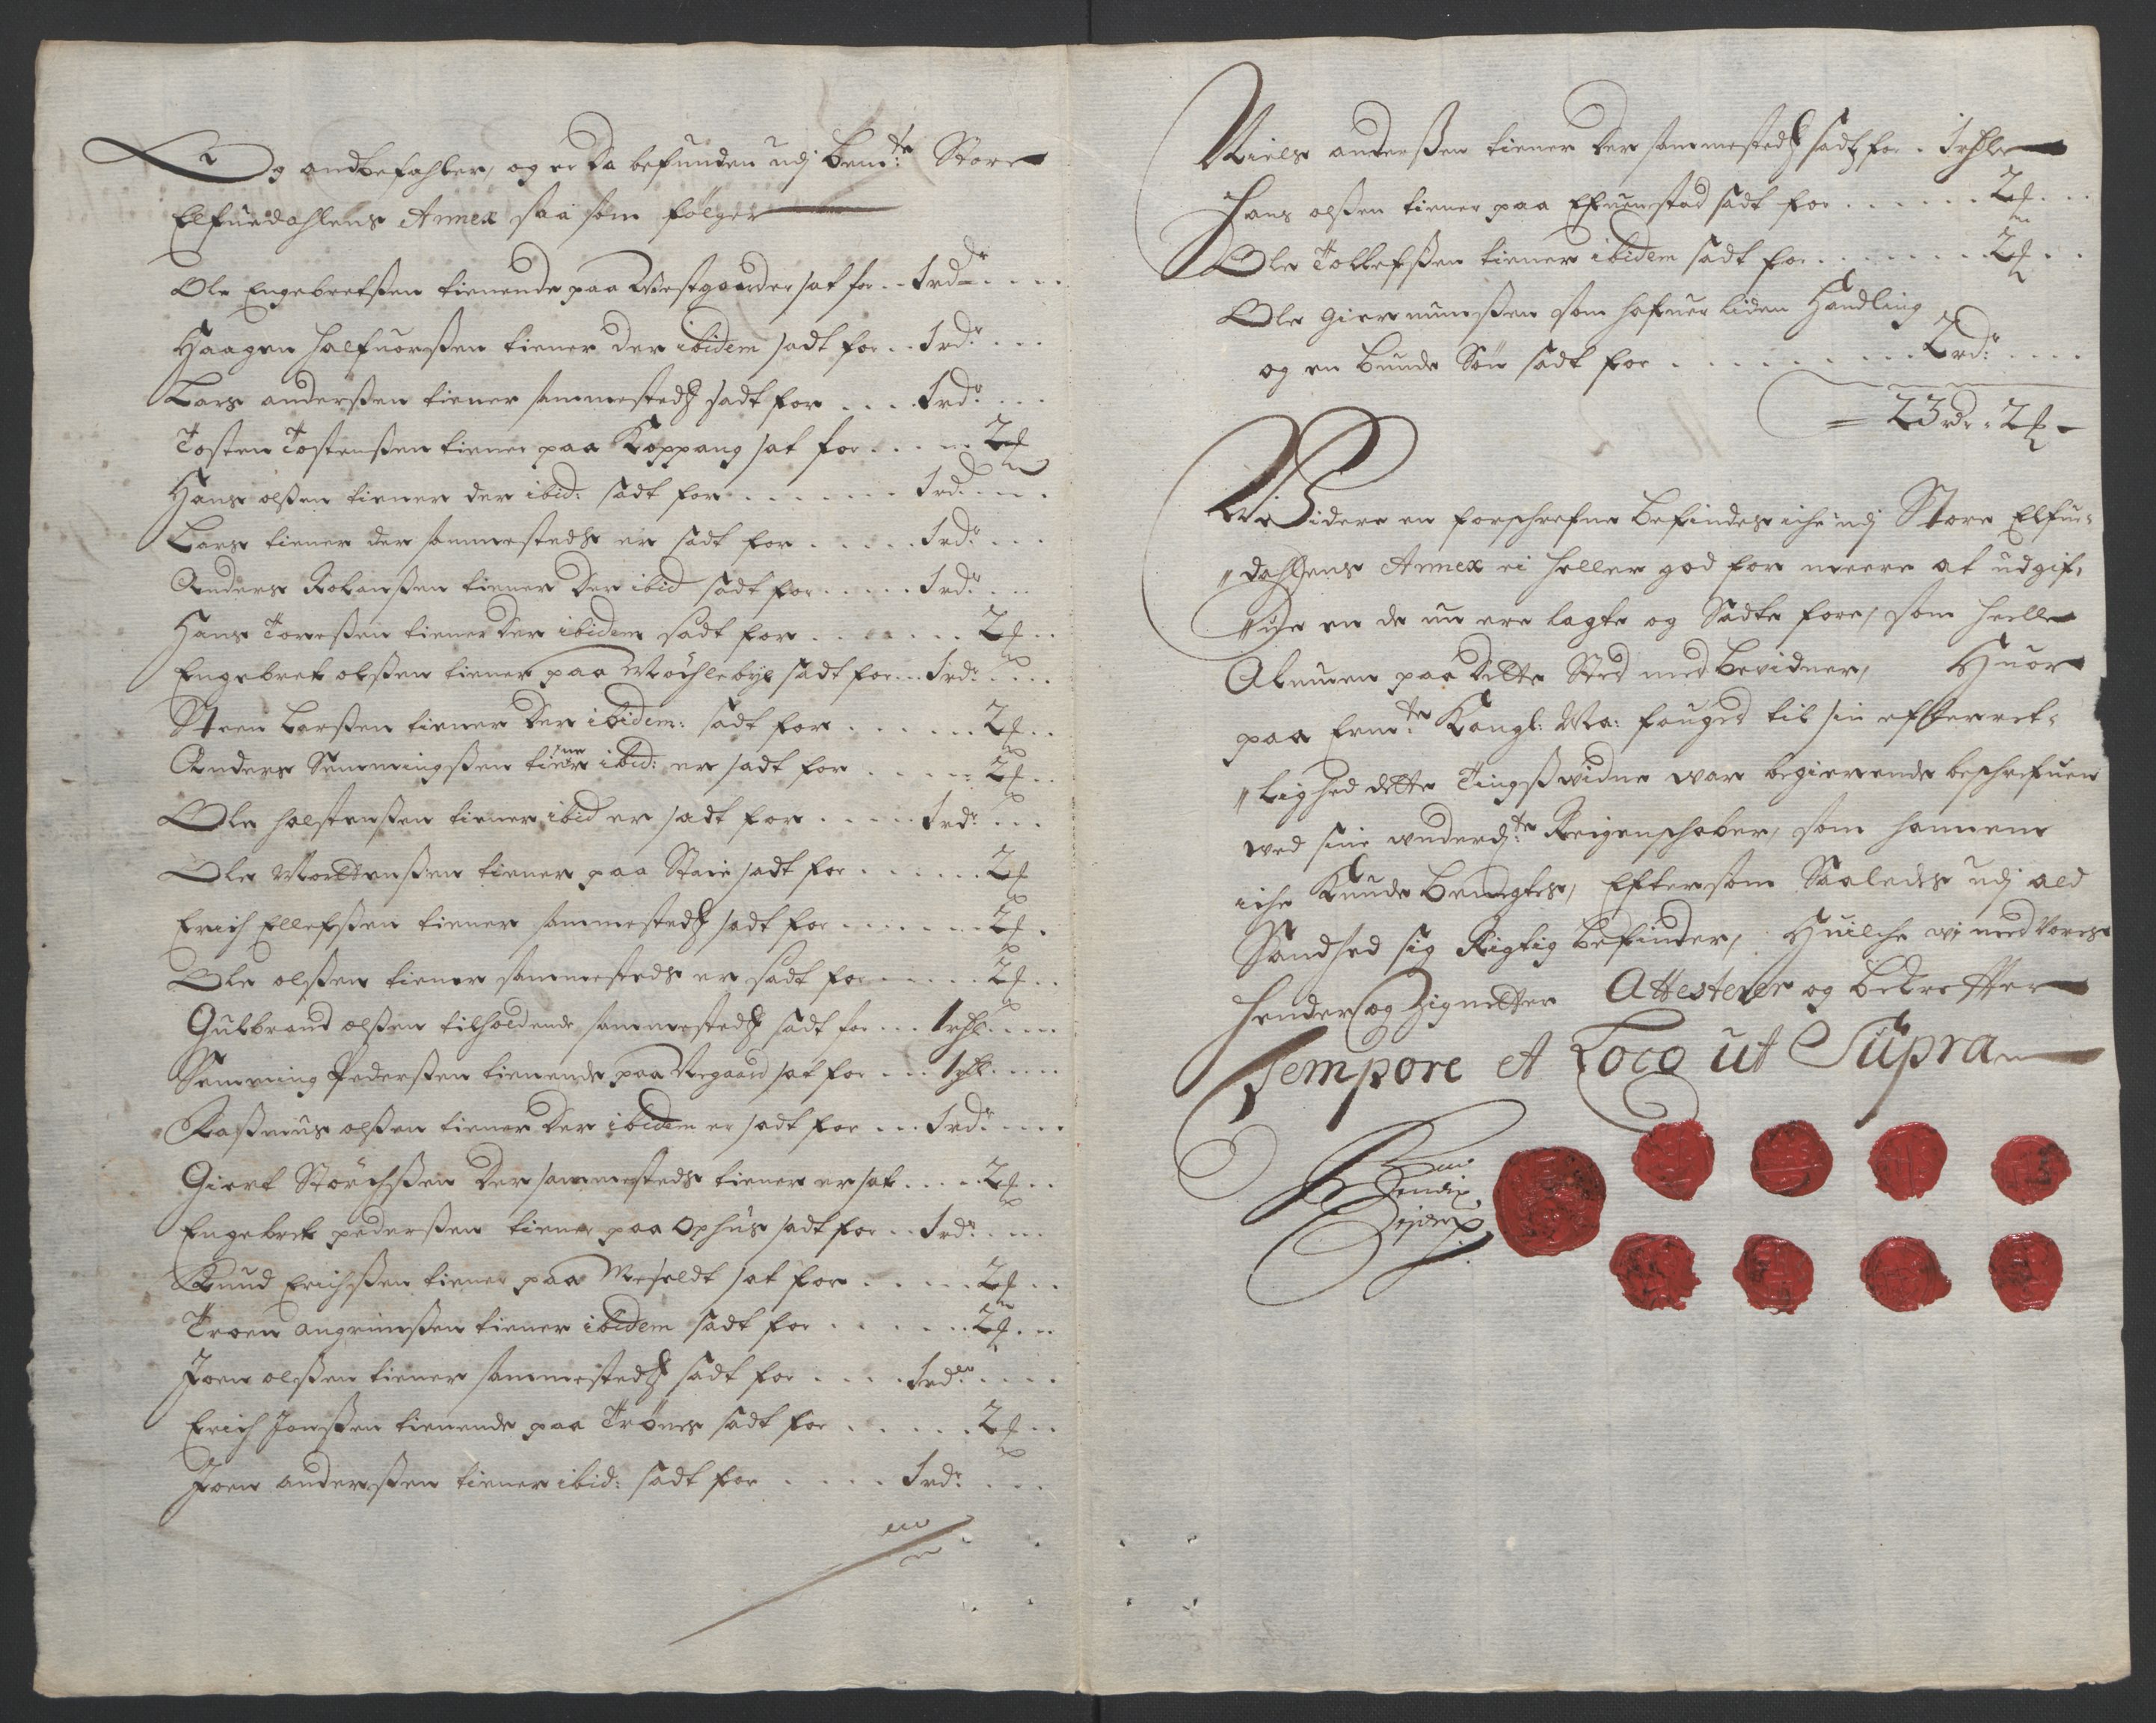 Og andbefahler, og er da befunden udj bemte: Store
Elfuedahlens Annex saa som følger
Ole Engebretßen tienende paa Westgaarder sat for .. 1 rdr
Haagen Halfuorßen tiener der ibidem sadt for .. 1 rdr
Lars anderßen tiener sammesteds sadt for .... 1 rdr
Tosten Tostenßen tiener paa Koppang sat for .... 2
Hans olßen tiener der ibid: sadt for ....... 1 rd.
Lars tiener der sammesteds er sadt for ..... 1 rdr
Anders tiener der ibid sadt for ..... 1 rdr
Hans Toreßen tiener der ibidem sadt for ....... 2
Engebret olßen tiener paa sadt for ... 1 rdr
Steen Larßen tiener der ibidem: sadt for ...... 2
Anders Semmingßen tiener ibid: er sadt for ..... 2
Ole Halstenßen tiener ibid er sadt for ..... 1 rdr
Ole Mortenßen tiener paa Staie sadt for ...... 2
Erich Ellefßen tiener sammesteds sadt for ....... 2
Ole olßen tiener sammesteds er sadt for ..... 2
Gulbrand olßen tilholdende sammesteds sadt for ... 1 rdl
Semming Pederßen tienende paa Negaard sat for ... 1 rdl
Raßmus olßen tiener der ibidem er sadt for ... 1 rdr
Giert Störchßen der sammesteds tiener er sat .... 2
Engebret pederßen tiener paa Ophus sadt for .. 1 rdr
Knud Erichßen tiener paa Meseldt sat for ..... 2
Troen angrimßen tiener ibidem sadt for ...... 2
Joen olßen tiener sammesteds sadt for .... 1 rdr
Erich Jonßen tienende paa Trønes sadt for ..... 2
Joen anderßen tiener ibid: sadt for .... 1 rdr
Niels anderßen tiener der sammesteds sadt for . 1 rdler
Hans olßen tiener paa Efuenstad sadt for ...... 2
Ole Tollefßen tiener ibidem sadt for ........ 2
Ole Giermundßen som hafuer liden Handling
og en bunde Søn sadt for .......... 2 rdr
= 23 rdr : 2
Widere en forschrefne befindes iche udj Store Elfue-
dahlens Annex ei heller god for meere at udgif-
ue en de nu ere lagte og Sadte fore, som heele
Almuen paa dette Sted med bevidner, Huor
paa Ermte: Kongl: Ma: fouged til sin efterret-
lighed dette Tingßwidne war begierende beschrefuen
wed sine underdte: Reigenschaber, som hannem
iche Kunde benegtes, Eftersom Saaledes udj ald
Sandhed sig Rigtig befinder, Huilche wj med Vores
Hender og Zignetter Attesterer og bekreffter
Tempore et Loco ut Supra